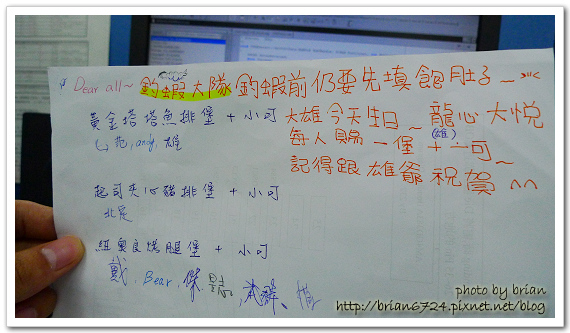 Dear all~ 釣蝦大隊 釣蝦前仍要先填飽肚子~
大雄今天生日~龍心大悅
每人賜一堡+一可~
(雄)
記得跟雄爺祝賀 ^^
黃金塔塔魚排堡 + 小可
andy, 雄
起司夾心豬排堡 + 小可
紐奧良烤腿堡 + 小可
戴, Bear,
photo by brian
http://brian6724.pixnet.net/blog